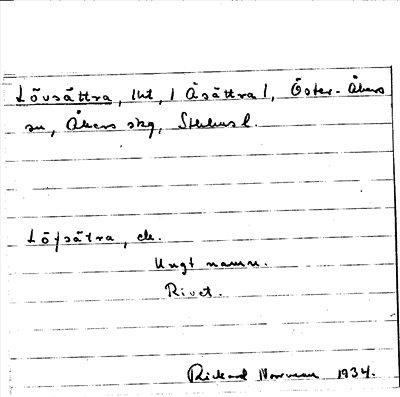 Lövsättra, lht, / Åsättra /, Öster-Åkers
sn, Åkers skg, Sthlms l.
Löfsätra, ek.
Ungt namn.
Rivet.
Rickard Norman 1934.